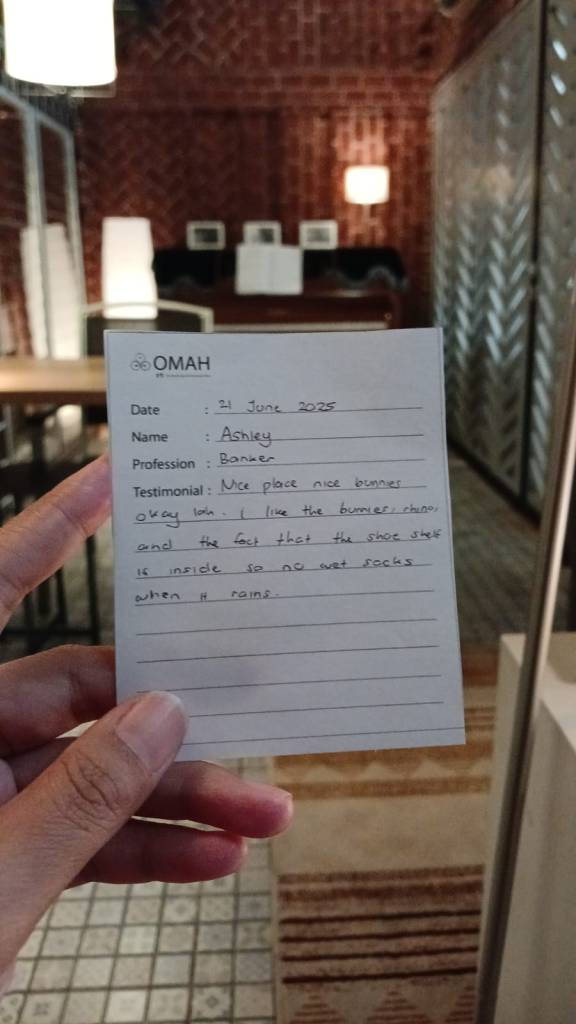 OMAH
Date : 21 June 2025
Name : Ashley
Profession : Banker
Testimonial : Nice place nice bunnies
okay lah. I like the bunnies, rhino,
and the fact that the shoe shelf
is inside so no wet socks
when it rains.